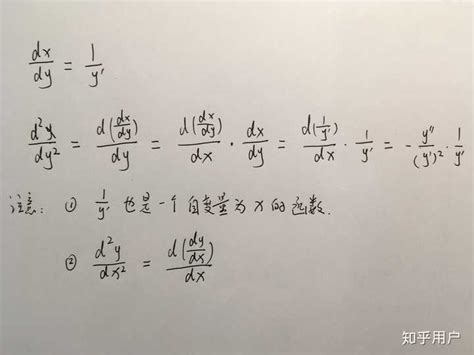 dx/dy = 1/y'
d²x/dy² = d(dx/dy)/dy = d(dx/dy)/dx · dx/dy = d(1/y')/dx · 1/y' = - y''/(y')² · 1/y'
注意: ① 1/y' 也是一个自变量为x的函数.
② d²y/dx² = d(dy/dx)/dx
知乎用户